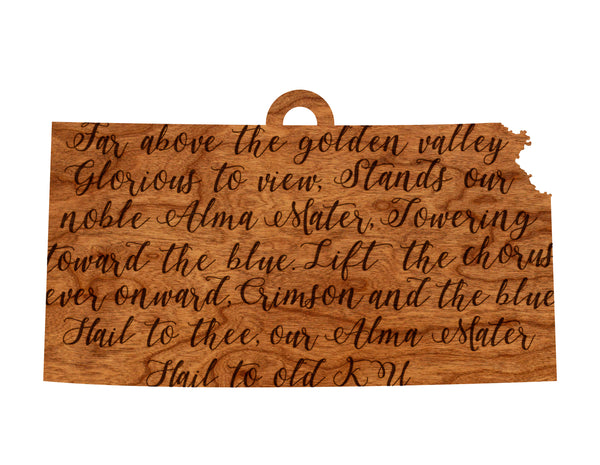 Far above the golden valley
Glorious to view, Stands our
noble Alma Mater, Towering
toward the blue. Lift the chorus
ever onward, Crimson and the blue
Hail to thee, our Alma Mater
Hail to old KU